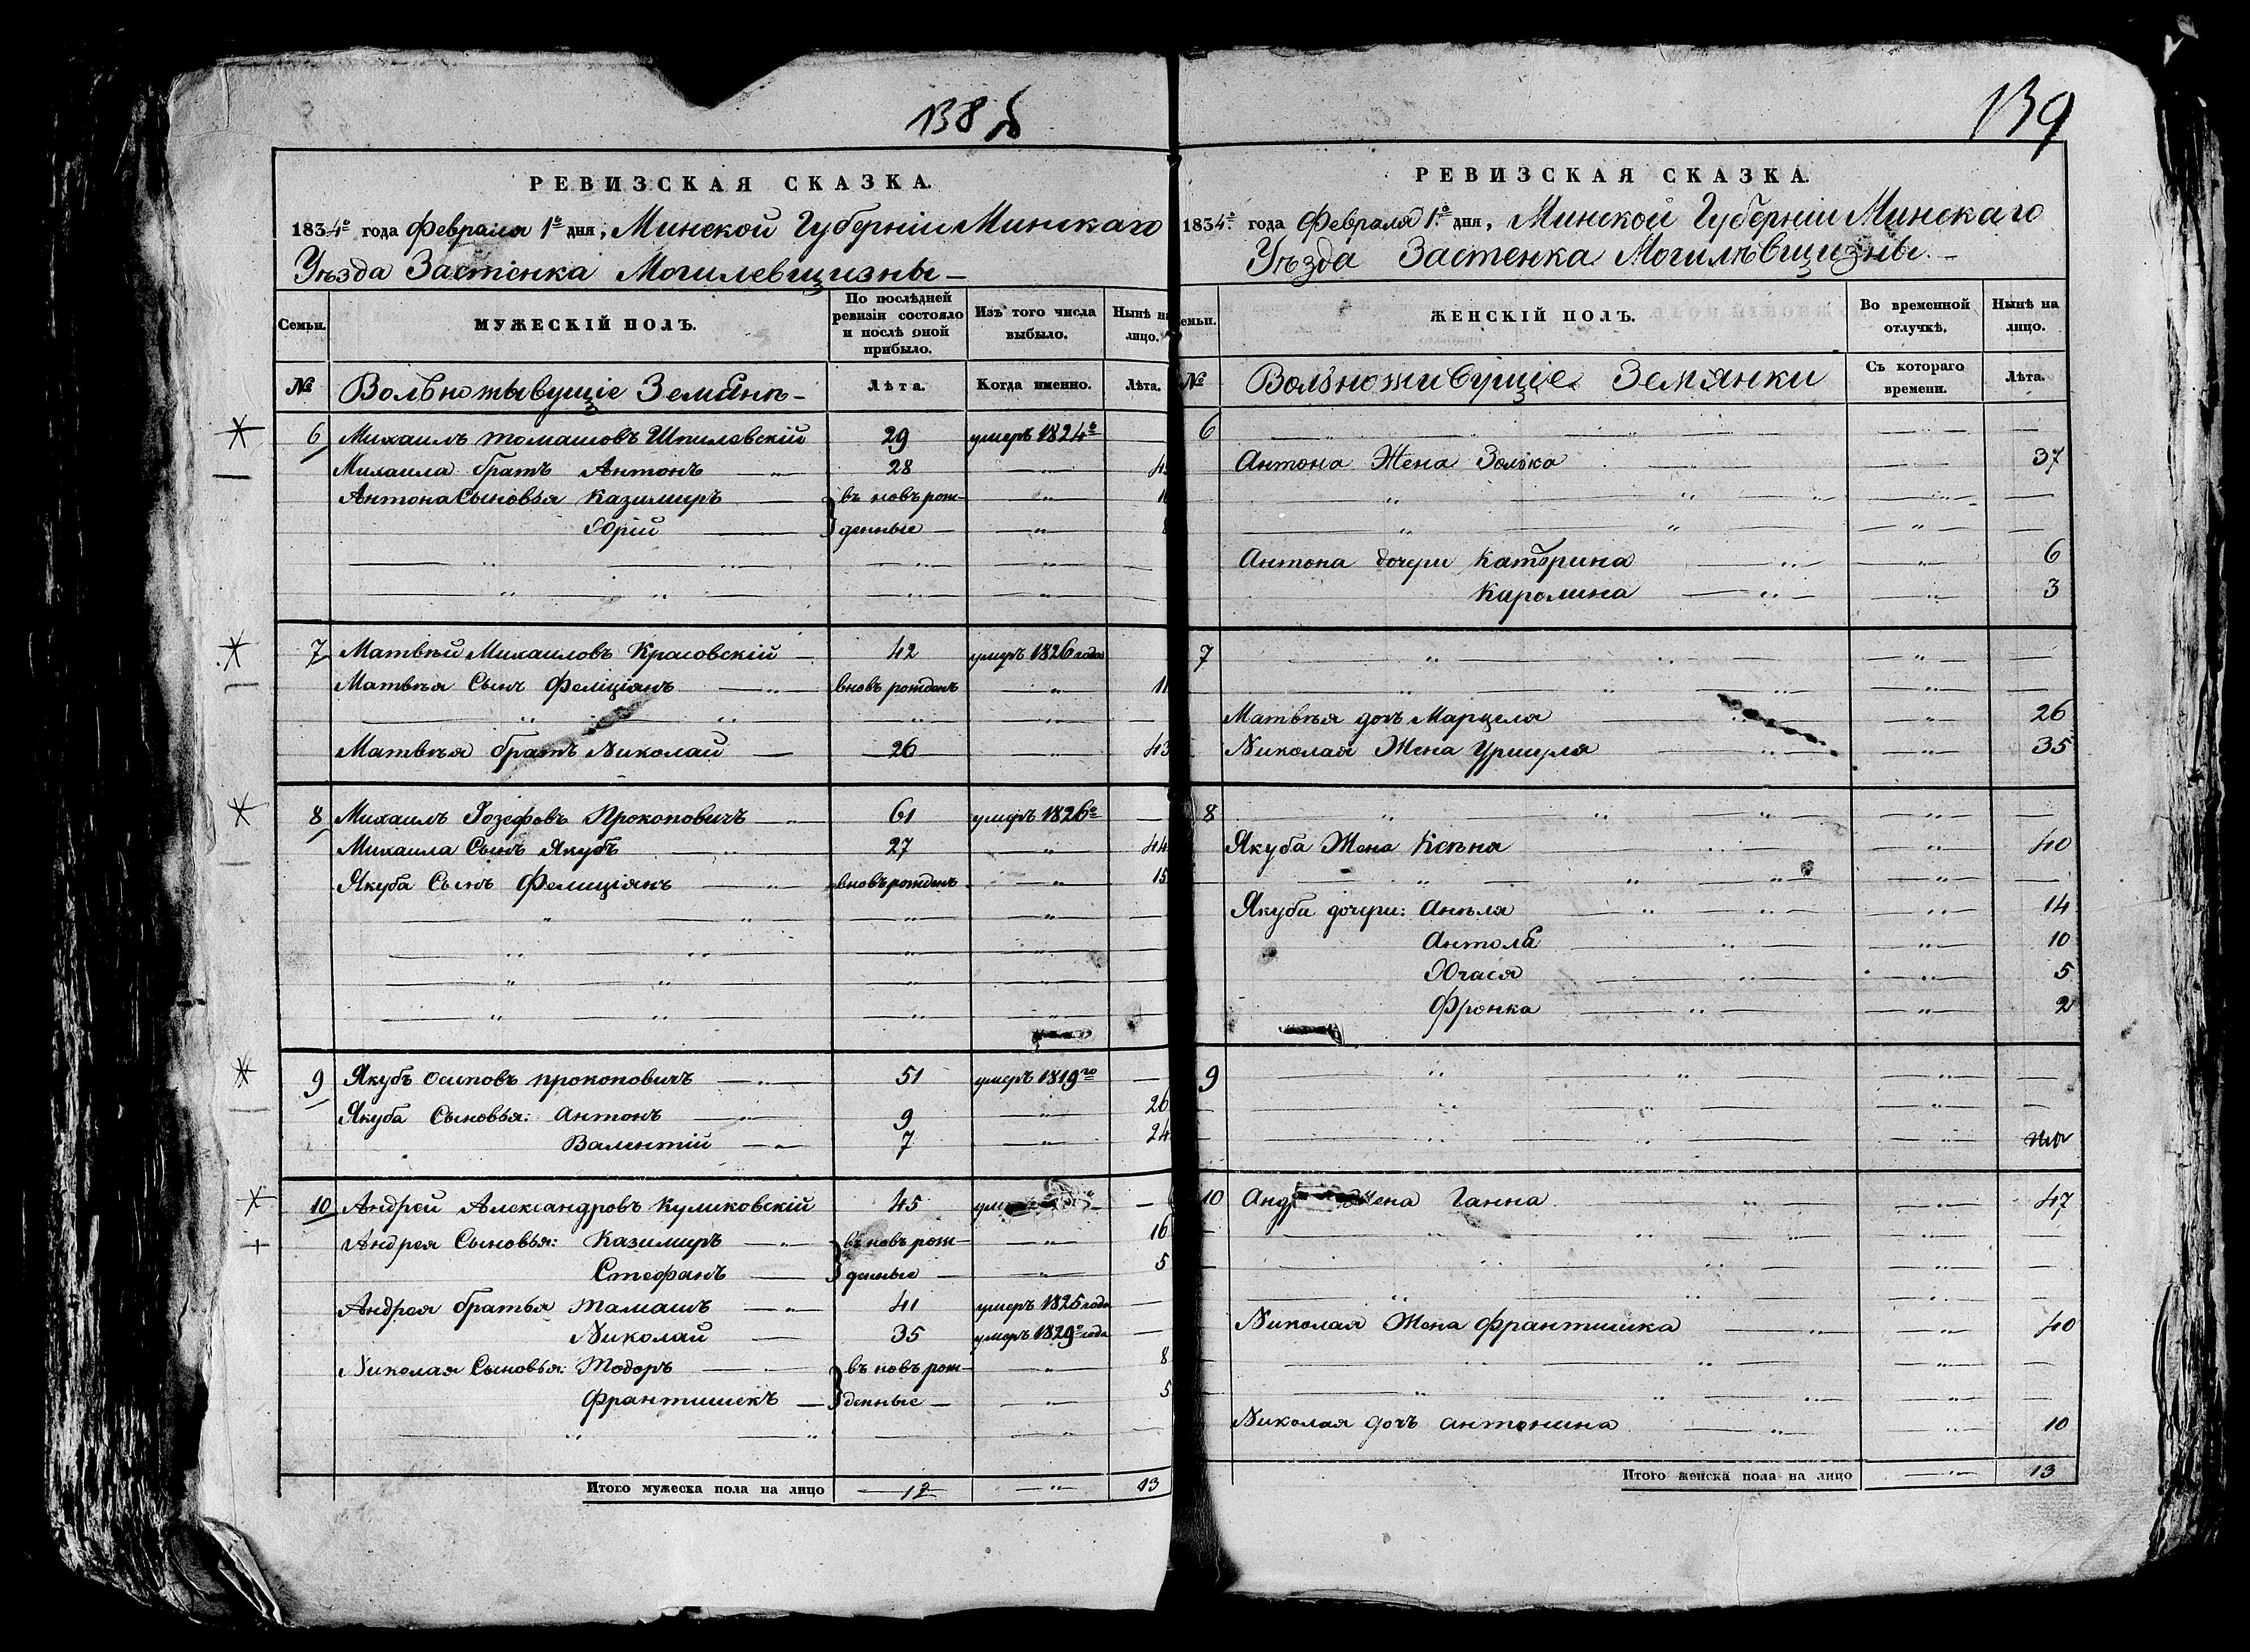 138 б
РЕВИЗСКАЯ СКАЗКА.
1834го года Февраля 1го дня, Минской Губерніи Минскаго
Уѣзда Застѣнка Могилевщизны —
Семьи. МУЖЕСКІЙ ПОЛЪ. По послѣдней ревизіи состояло и послѣ оной прибыло. Изъ того числа выбыло. Нынѣ на лицо.
№ Вольножывущіе Земянѣ — Лѣта. Когда именно. Лѣта.
6 Михаилъ томашовъ Шпилевскій 29 умеръ 1824го
Михаила братъ Антонъ 28
Антона Сыновья Казимиръ въ новъ рож-
Юрій денные
7 Матвѣй Михаиловъ Красовскій 42 умеръ 1826 года
Матвѣя Сынъ Феліціянъ вновь рожденъ 11
Матвѣя братъ Николай 26 43
8 Михаилъ Іозефовъ Прокоповичъ 61 умеръ 1826го
Михаила Сынъ Якубъ 27 44
Якуба Сынъ Фелиціянъ вновърожденъ 15
9 Якубъ Осиповъ прокоповичъ 51 умеръ 1819го
Якуба Сыновья: Антонъ 9 26
Валентій 7 24
10 Андрей Александровъ Куликовскій 45
Андрея Сыновья: Казимиръ въ новъ рож- 16
Стефанъ денные 5
Андрея братья тамашъ 41 умеръ 1825 года
Николай 35 умеръ 1829го года
Николая Сыновья: Тодоръ въ новъ рож- 8
Франтишекъ денные 5
Итого мужеска пола на лицо 12 13
139
РЕВИЗСКАЯ СКАЗКА.
1834го года Февраля 1го дня, Минской Губерніи Минскаго
Уѣзда Застенка Могилѣвщизны —
емьи. ЖЕНСКІЙ ПОЛЪ. Во временной отлучкѣ. Нынѣ на лицо.
№ Вольноживущіе Земянки Съ котораго времени. Лѣта.
6
Антона Жена Золька 37
Антона дочери Катерина 6
Каролина 3
7
Матвѣя дочъ Марцеля 26
Николая Жена Уршуля 35
8
Якуба Жена Ксѣня 40
Якуба дочери: Анѣля 14
Антоля 10
Югася 5
Фронка 2
9
10 Анд Жена Ганна 47
Николая Жена Франтишка 40
Николая дочъ антонина 10
Итого женска пола на лицо 13